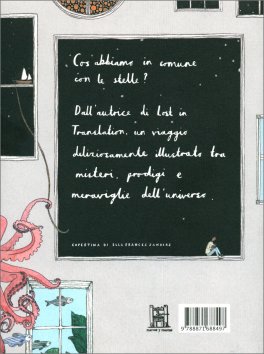 Cos'abbiamo in comune
con le stelle?
Dall'autrice di Lost in
Translation, un viaggio
deliziosamente illustrato tra
misteri, prodigi e
meraviglie dell'universo.
COPERTINA DI ELLA FRANCES SANDERS
MARCOS Y MARCOS
9 788871 688497